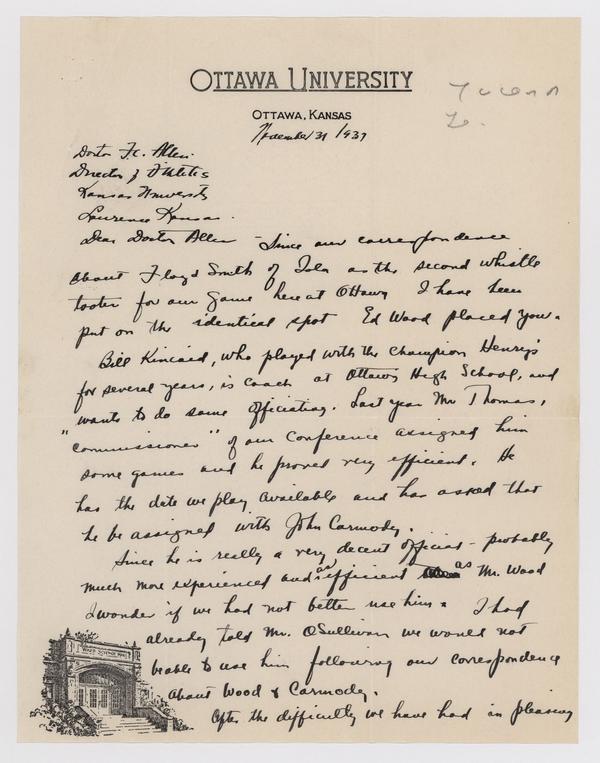 OTTAWA UNIVERSITY
OTTAWA, KANSAS
November 31 1937
Doctor F.C. Allen
Director of Athletics
Kansas University
Lawrence Kansas.
Dear Doctor Allen - Since our correspondence
about Floyd Smith of Iola as the second whistle
tooter for our game here at Ottawa I have been
put on the identical spot Ed Wood placed you.
Bill Kincaid, who played with the Champion Henry's
for several years, is coach at Ottawa High School, and
wants to do some officiating. Last year Mr Thomas,
"commissioner" of our Conference assigned him
some games and he proved very efficient. He
has the date we play available and has asked that
he be assigned with John Carmody.
Since he is really a very decent official - probably
much more experienced and as efficient as Mr. Wood
I wonder if we had not better use him. I had
already told Mr. OSullivan we would not
be able to use him following our correspondence
about Wood & Carmody.
After the difficulty we have had in pleasing